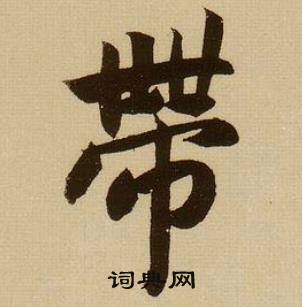 帶
词典网